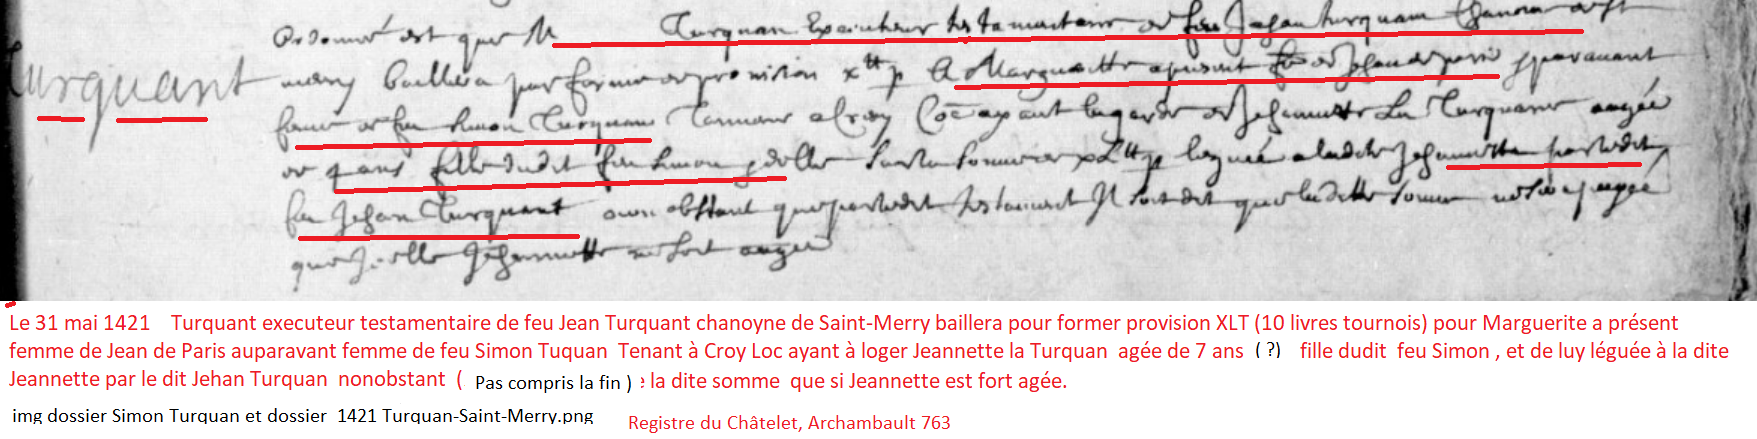 Ordonné est que Me Turquan Executeur testamentaire de feu Jehan turquan Chanoine de St
Turquant
merry baillera par forme de provision xtt p A Marguerite apresent fe de Jehan de paris paravant
femme de feu Simon Turquan Tanneur a ayant la garde de Jehannette La Turquane aagée
de 4 ans fille dudit feu Simon et delle Sur la somme de xLtt p leguée a ladite Jehannette par ledit
feu Jehan Turquant non obstant que par ledit testament Il soit dit que ladite somme ne soit payée
que Jcelle Jehannette ne soit aagée
Le 31 mai 1421 Turquant executeur testamentaire de feu Jean Turquant chanoyne de Saint-Merry baillera pour former provision XLT (10 livres tournois) pour Marguerite a présent
femme de Jean de Paris auparavant femme de feu Simon Tuquan Tenant à Croy Loc ayant à loger Jeannette la Turquan agée de 7 ans ( ?) fille dudit feu Simon , et de luy léguée à la dite
Jeannette par le dit Jehan Turquan nonobstant ( Pas compris la fin ) : la dite somme que si Jeannette est fort agée.
img dossier Simon Turquan et dossier 1421 Turquan-Saint-Merry.png Registre du Châtelet, Archambault 763